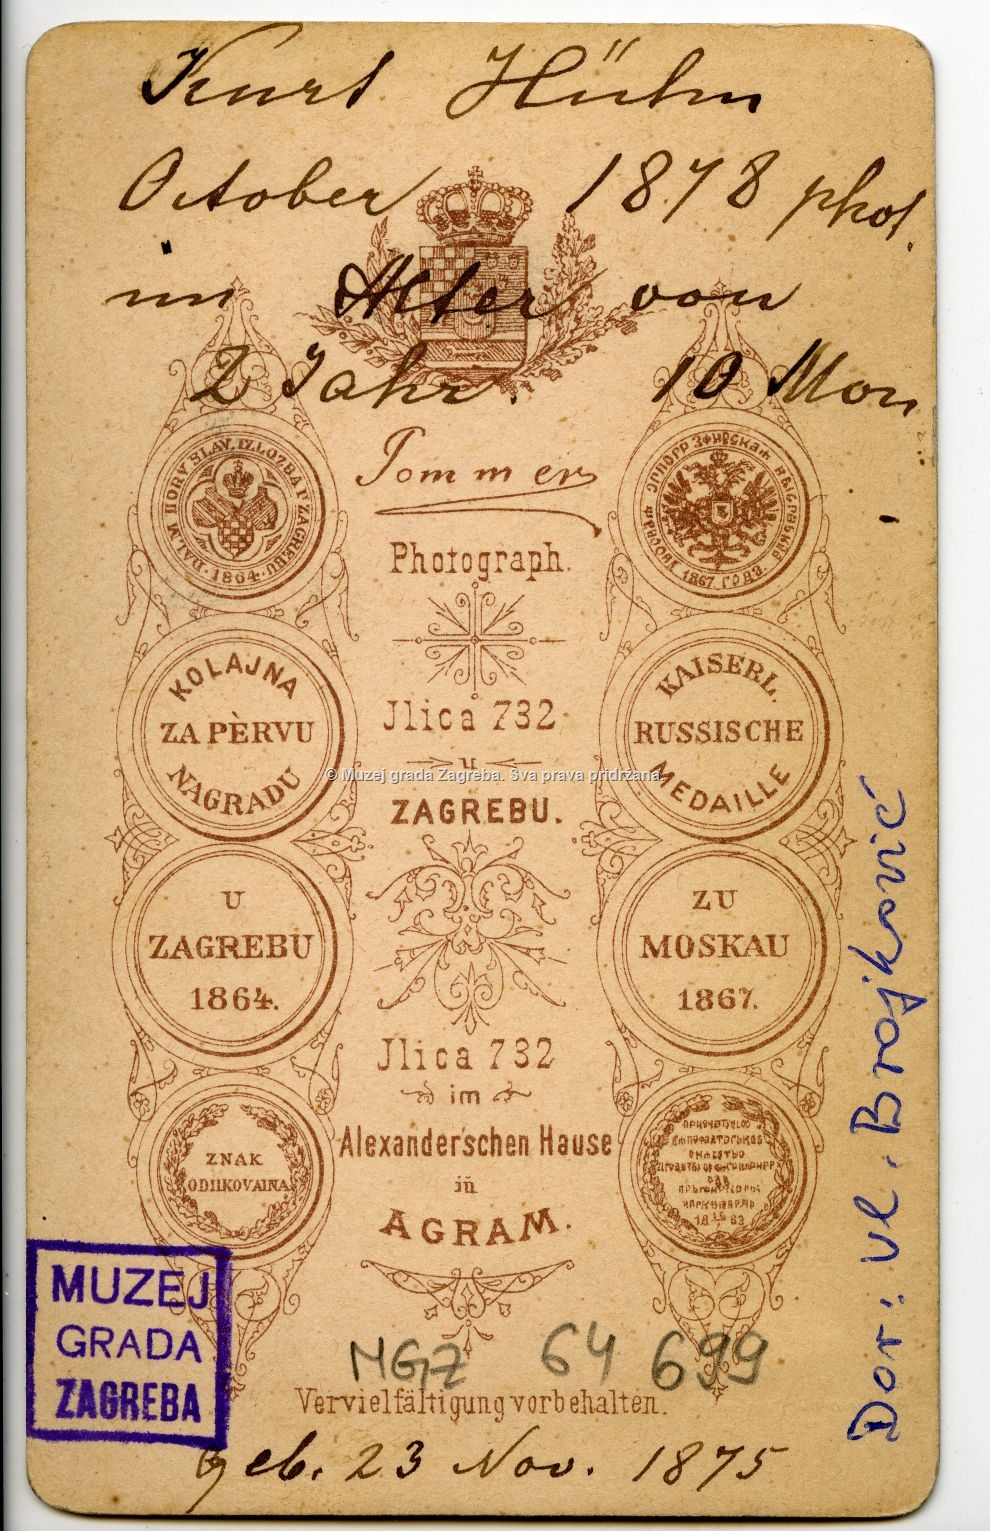 Kurt Hühn
October 1878 phot.
im Alter von
2 Jahr. 10 Mon
DALM HORV SLAV. IZLOŽBA U ZAGREBU
1864
1867
Pommer
Photograph.
Jlica 732
u
ZAGREBU.
KOLAJNA
ZA PÈRVU
NAGRADU
KAISERL.
RUSSISCHE
MEDAILLE
U
ZAGREBU
1864.
ZU
MOSKAU
1867.
Jlica 732
im
Alexander'schen Hause
in
AGRAM.
ZNAK
ODLIKOVAINA
18 63
MUZEJ
GRADA
ZAGREBA
MGZ 64 699
Vervielfältigung vorbehalten.
Geb. 23 Nov. 1875
Dor: Vl. Brajković
© Muzej grada Zagreba. Sva prava pridržana.